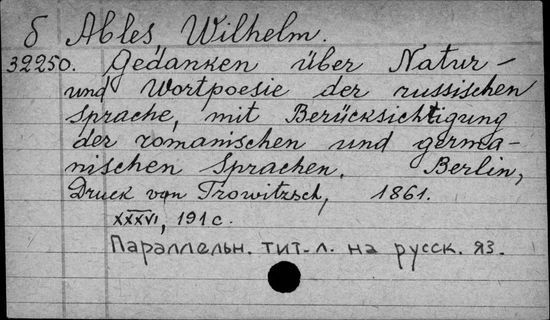 б Ables, Wilhelm.
32250. Gedanken über Natur-
und Wortpoesie der russischen
Sprache, mit Berücksichtigung
der romanischen und germa-
nischen Sprachen. Berlin,
Druck von Trowitzsch, 1861.
XXXVI, 191 с.
Параллельн. тит. л. на русск. яз.